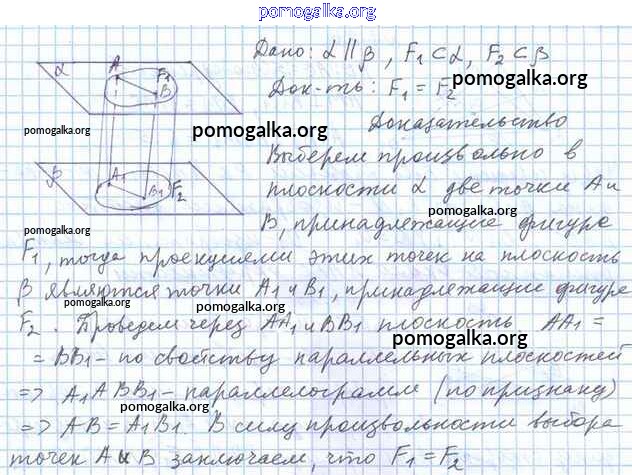 pomogalka.org
Дано: α∥β, F₁⊂α, F₂⊂β
Док-ть: F₁=F₂
pomogalka.org
pomogalka.org
pomogalka.org
pomogalka.org
Доказательство
Выберем произвольно в
плоскости α две точки A и
B, принадлежащие фигуре
F₁, тогда проекциями этих точек на плоскость
β являются точки A₁ и B₁, принадлежащие фигуре
F₂. Проведем через AA₁ и BB₁ плоскость. AA₁=
=BB₁ - по свойству параллельных плоскостей
=> A₁ABB₁ - параллелограмм (по признаку)
=> AB=A₁B₁. В силу произвольности выбора
точек A и B заключаем, что F₁=F₂
α
A
F₁
B
β
A₁
B₁
F₂
pomogalka.org
pomogalka.org
pomogalka.org
pomogalka.org
pomogalka.org
pomogalka.org